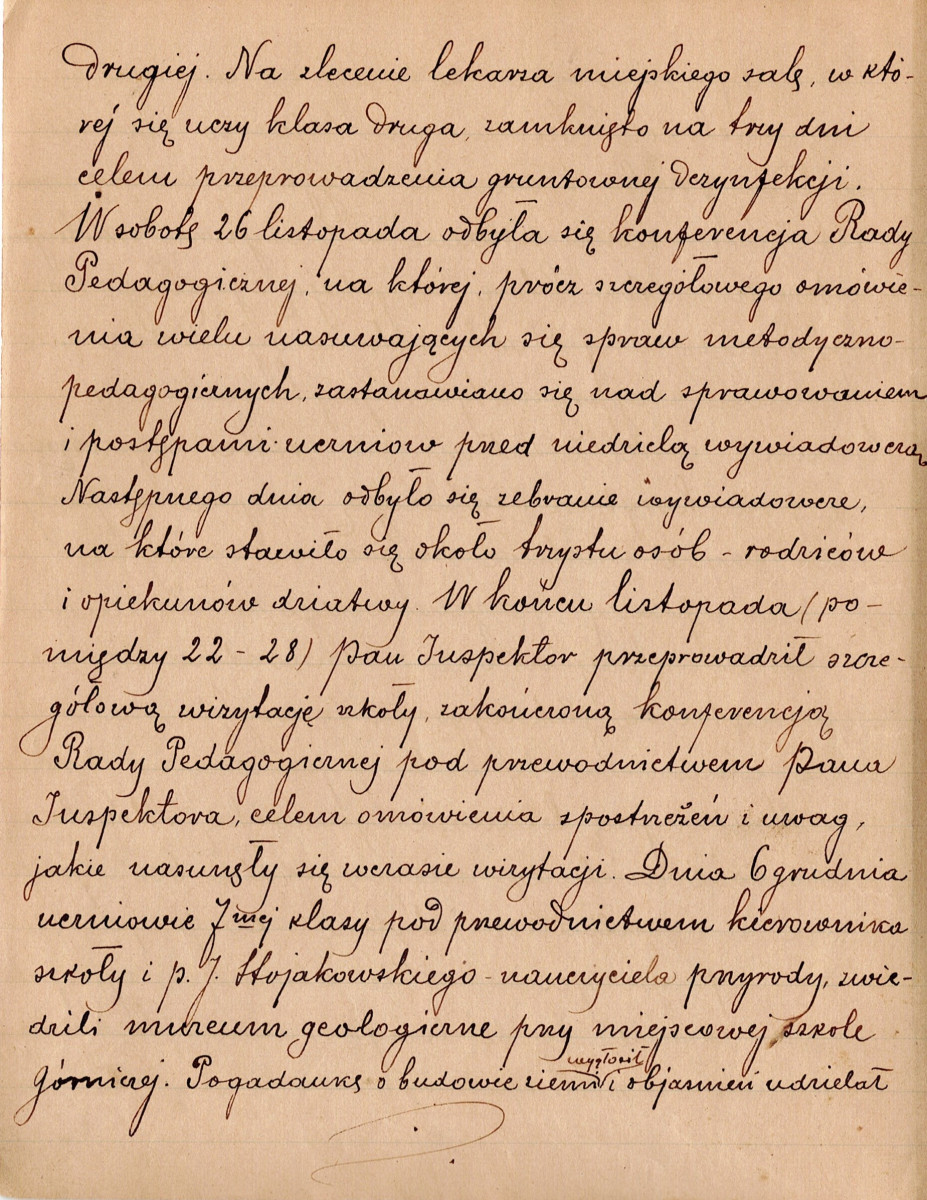 drugiej. Na zlecenie lekarza miejskiego salę, w któ-
rej się uczy klasa druga, zamknięto na trzy dni
celem przeprowadzenia gruntownej dezynfekcji.
W sobotę 26 listopada odbyła się konferencja Rady
Pedagogicznej, na której, prócz szczegółowego omówie-
nia wielu nasuwających się spraw metodyczno-
pedagogicznych, zastanawiano się nad sprawowaniem
i postępami uczniów przed niedzielą wywiadowczą
Następnego dnia odbyło się zebranie wywiadowcze,
na które stawiło się około trzystu osób - rodziców
i opiekunów dziatwy. W końcu listopada (po-
między 22 - 28) Pan Inspektor przeprowadził szcze-
gółową wizytację szkoły, zakończoną konferencją
Rady Pedagogicznej pod przewodnictwem Pana
Inspektora, celem omówienia spostrzeżeń i uwag,
jakie nasunęły się wczasie wizytacji. Dnia 6 grudnia
uczniowie 7mej klasy pod przewodnictwem kierownika
szkoły i p. J. Stojakowskiego - nauczyciela przyrody, zwie-
dzili muzeum geologiczne przy miejscowej szkole
Górniczej. Pogadankę o budowie ziemi wygłosił i objaśnień udzielał